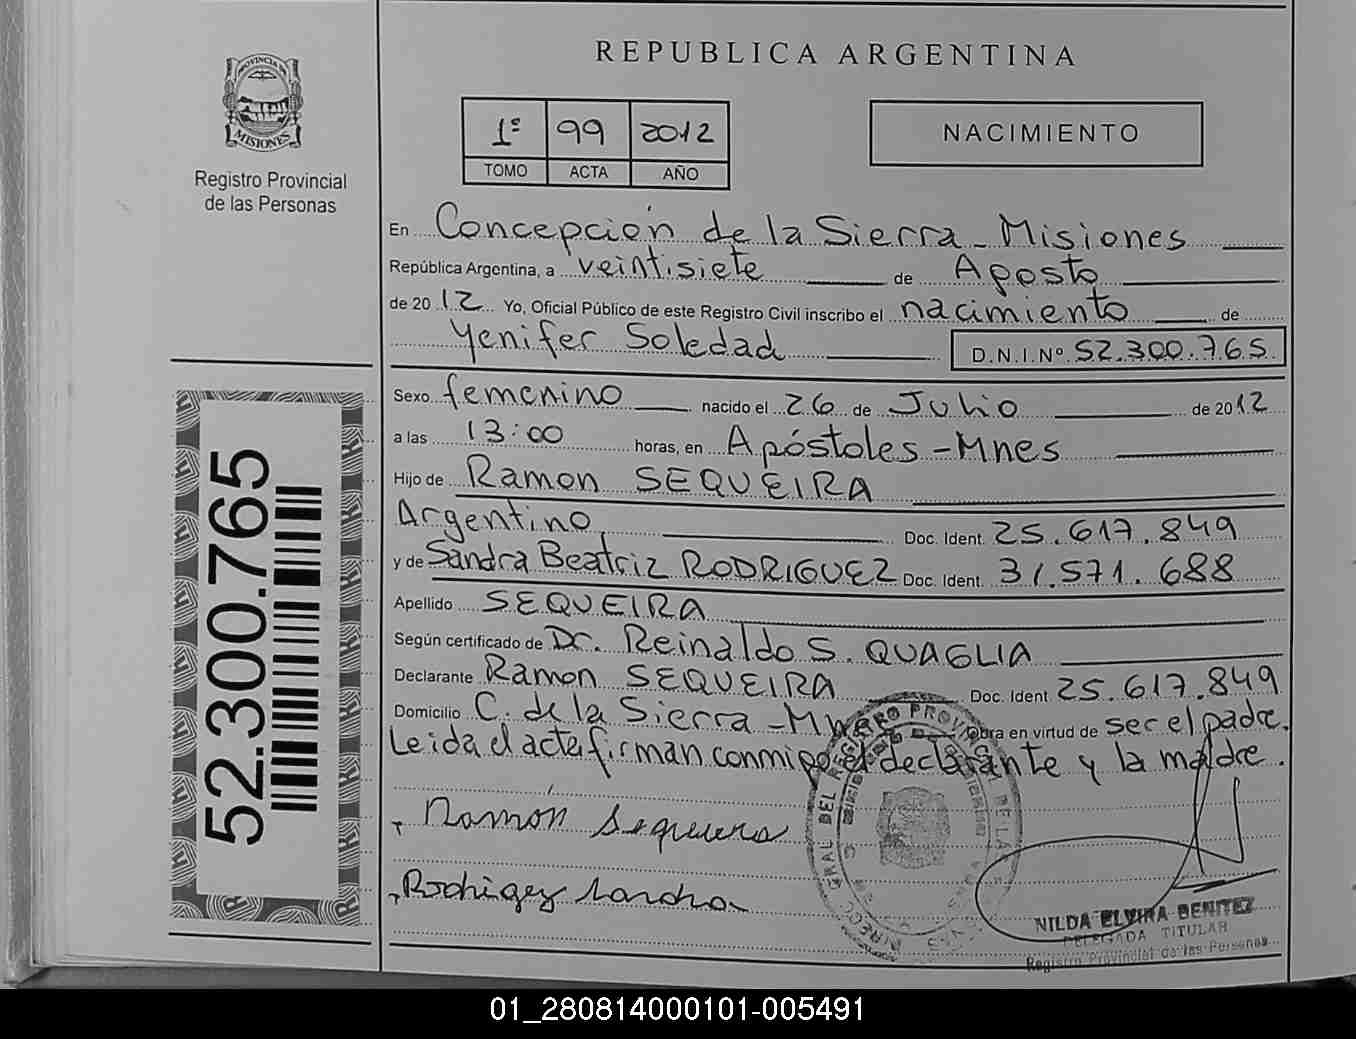 REPUBLICA ARGENTINA
PROVINCIA DE
MISIONES
Registro Provincial
de las Personas
1º 99 2012
TOMO ACTA AÑO
NACIMIENTO
En Concepción de la Sierra - Misiones
República Argentina, a veintisiete de Agosto
de 2012 Yo, Oficial Público de este Registro Civil inscribo el nacimiento de
Yenifer Soledad D.N.I.Nº 52.300.765
Sexo femenino nacido el 26 de Julio de 2012
a las 13:00 horas, en Apóstoles - Mnes
Hijo de Ramon SEQUEIRA
Argentino Doc. Ident. 25.617.849
y de Sandra Beatriz RODRIGUEZ Doc. Ident. 31.571.688
Apellido SEQUEIRA
Según certificado de Dr. Reinaldo S. QUAGLIA
Declarante Ramon SEQUEIRA Doc. Ident 25.617.849
Domicilio C. de la Sierra - Mnes Obra en virtud de ser el padre.
Leida el acta firman conmigo el declarante y la madre.
Ramón Sequeira
Rodriguez Sandra
NILDA ELVIRA BENITEZ
DELEGADA TITULAR
Registro Provincial de las Personas
52.300.765
01_280814000101-005491